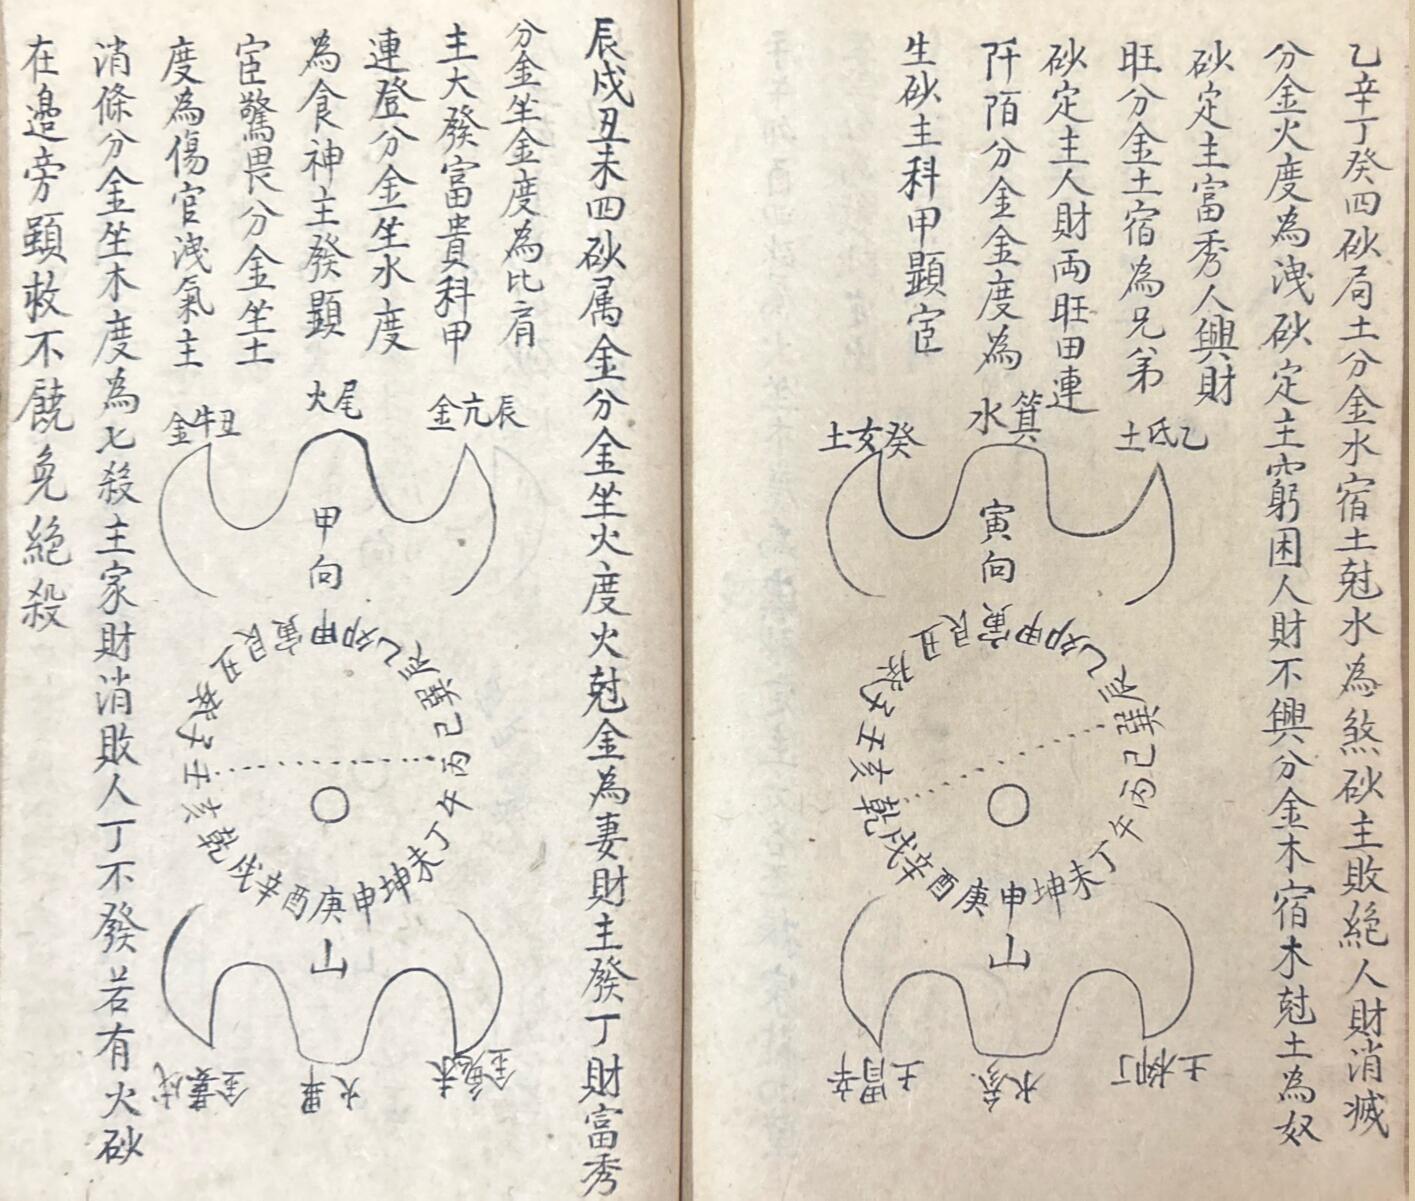 乙辛丁癸四砂局土分金水宿土尅水為煞砂主敗絕人財消滅
分金火度為洩砂定主窮困人財不興分金木宿木尅土為奴
砂定主富秀人興財
旺分金土宿為兄弟
砂定主人財両旺田連
阡陌分金金度為
生砂主科甲顕宦
乙氐土
箕水
癸女土
寅向
壬子癸丑艮寅甲卯乙辰巽巳丙午丁未坤申庚酉辛戌乾亥
山
丁柳土
参水
辛胃土
辰戌丑未四砂属金分金坐火度火尅金為妻財主發丁財富秀
分金坐金度為比肩
主大發富貴科甲
連登分金坐水度
為食神主發顕
宦驚畏分金坐土
度為傷官洩氣主
消條分金坐木度為七殺主家財消敗人丁不發若有火砂
在邉旁顕救不饒免絕殺
辰亢金
尾火
丑牛金
甲向
壬子癸丑艮寅甲卯乙辰巽巳丙午丁未坤申庚酉辛戌乾亥
山
未鬼金
畢火
戌婁金